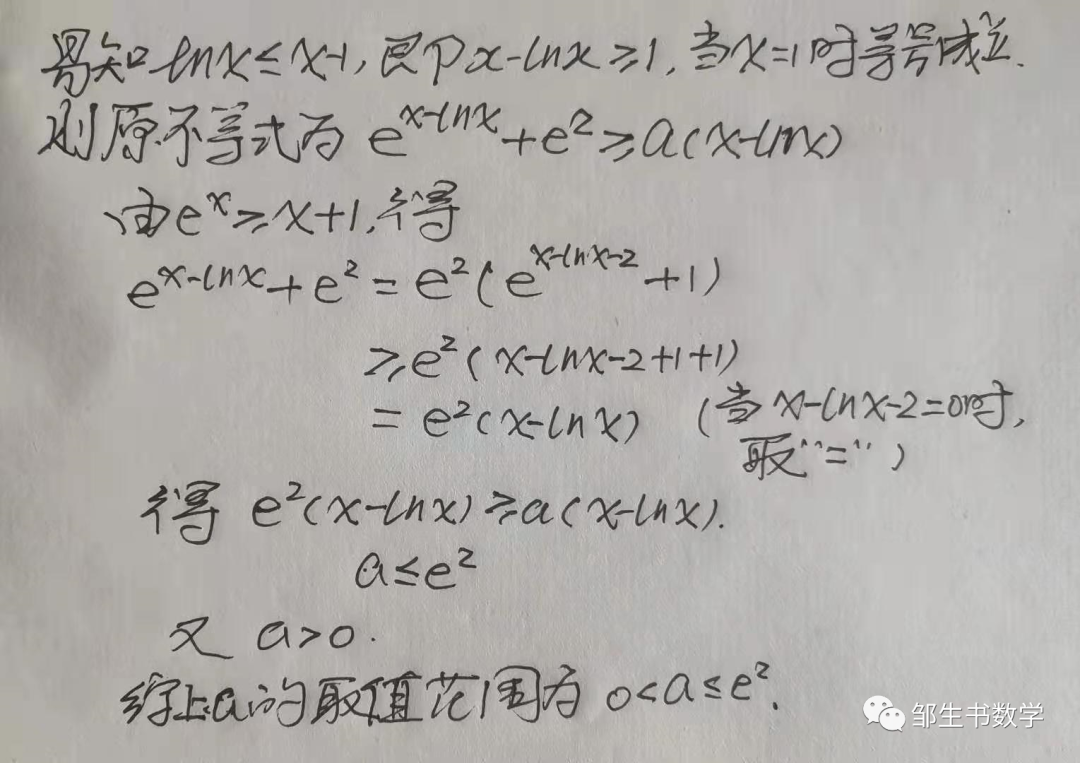 易知lnx≤x-1,即x-lnx≥1,当x=1时等号成立.
则原不等式为 e^{x-lnx}+e²≥a(x-lnx)
由e^x≥x+1,得
e^{x-lnx}+e²=e²(e^{x-lnx-2}+1)
≥e²(x-lnx-2+1+1)
=e²(x-lnx) (当x-lnx-2=0时,
取"=")
得 e²(x-lnx)≥a(x-lnx).
a≤e²
又 a>0.
综上a的取值范围为 0<a≤e².
邹生书数学